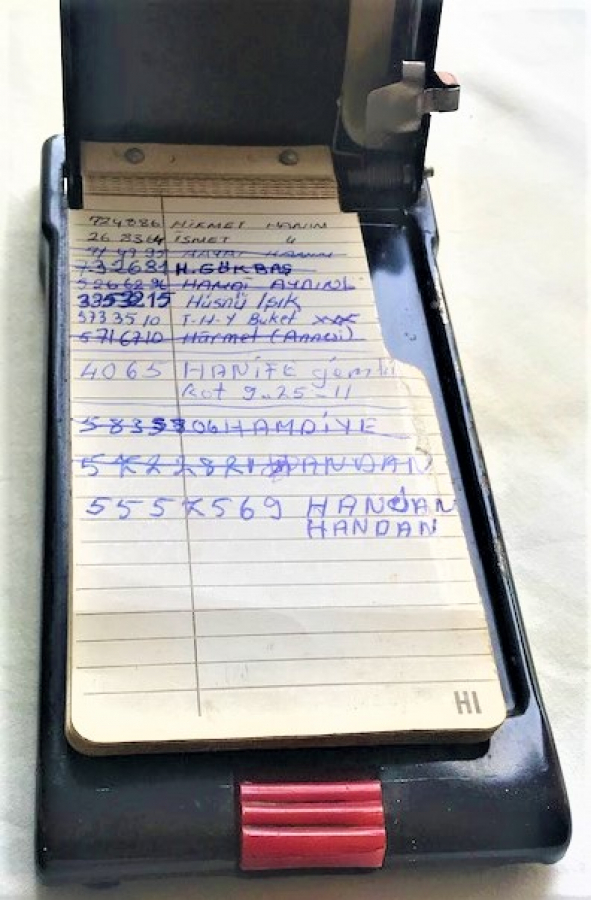 724886 HİKMET HANIM
26 8364 İSMET "
HAYAT HANIM
732681 H. GÖKBAŞ
HAMDİ
3353215 Hüsnü Işık
573 35 10 T-H-Y Buket
5716710 Hürmet (Annesi)
4065 HANİFE gemlik
Kot 9-25-11
5835806 HAMDİYE
HANDAN
555 7569 HANDAN
HANDAN
HI